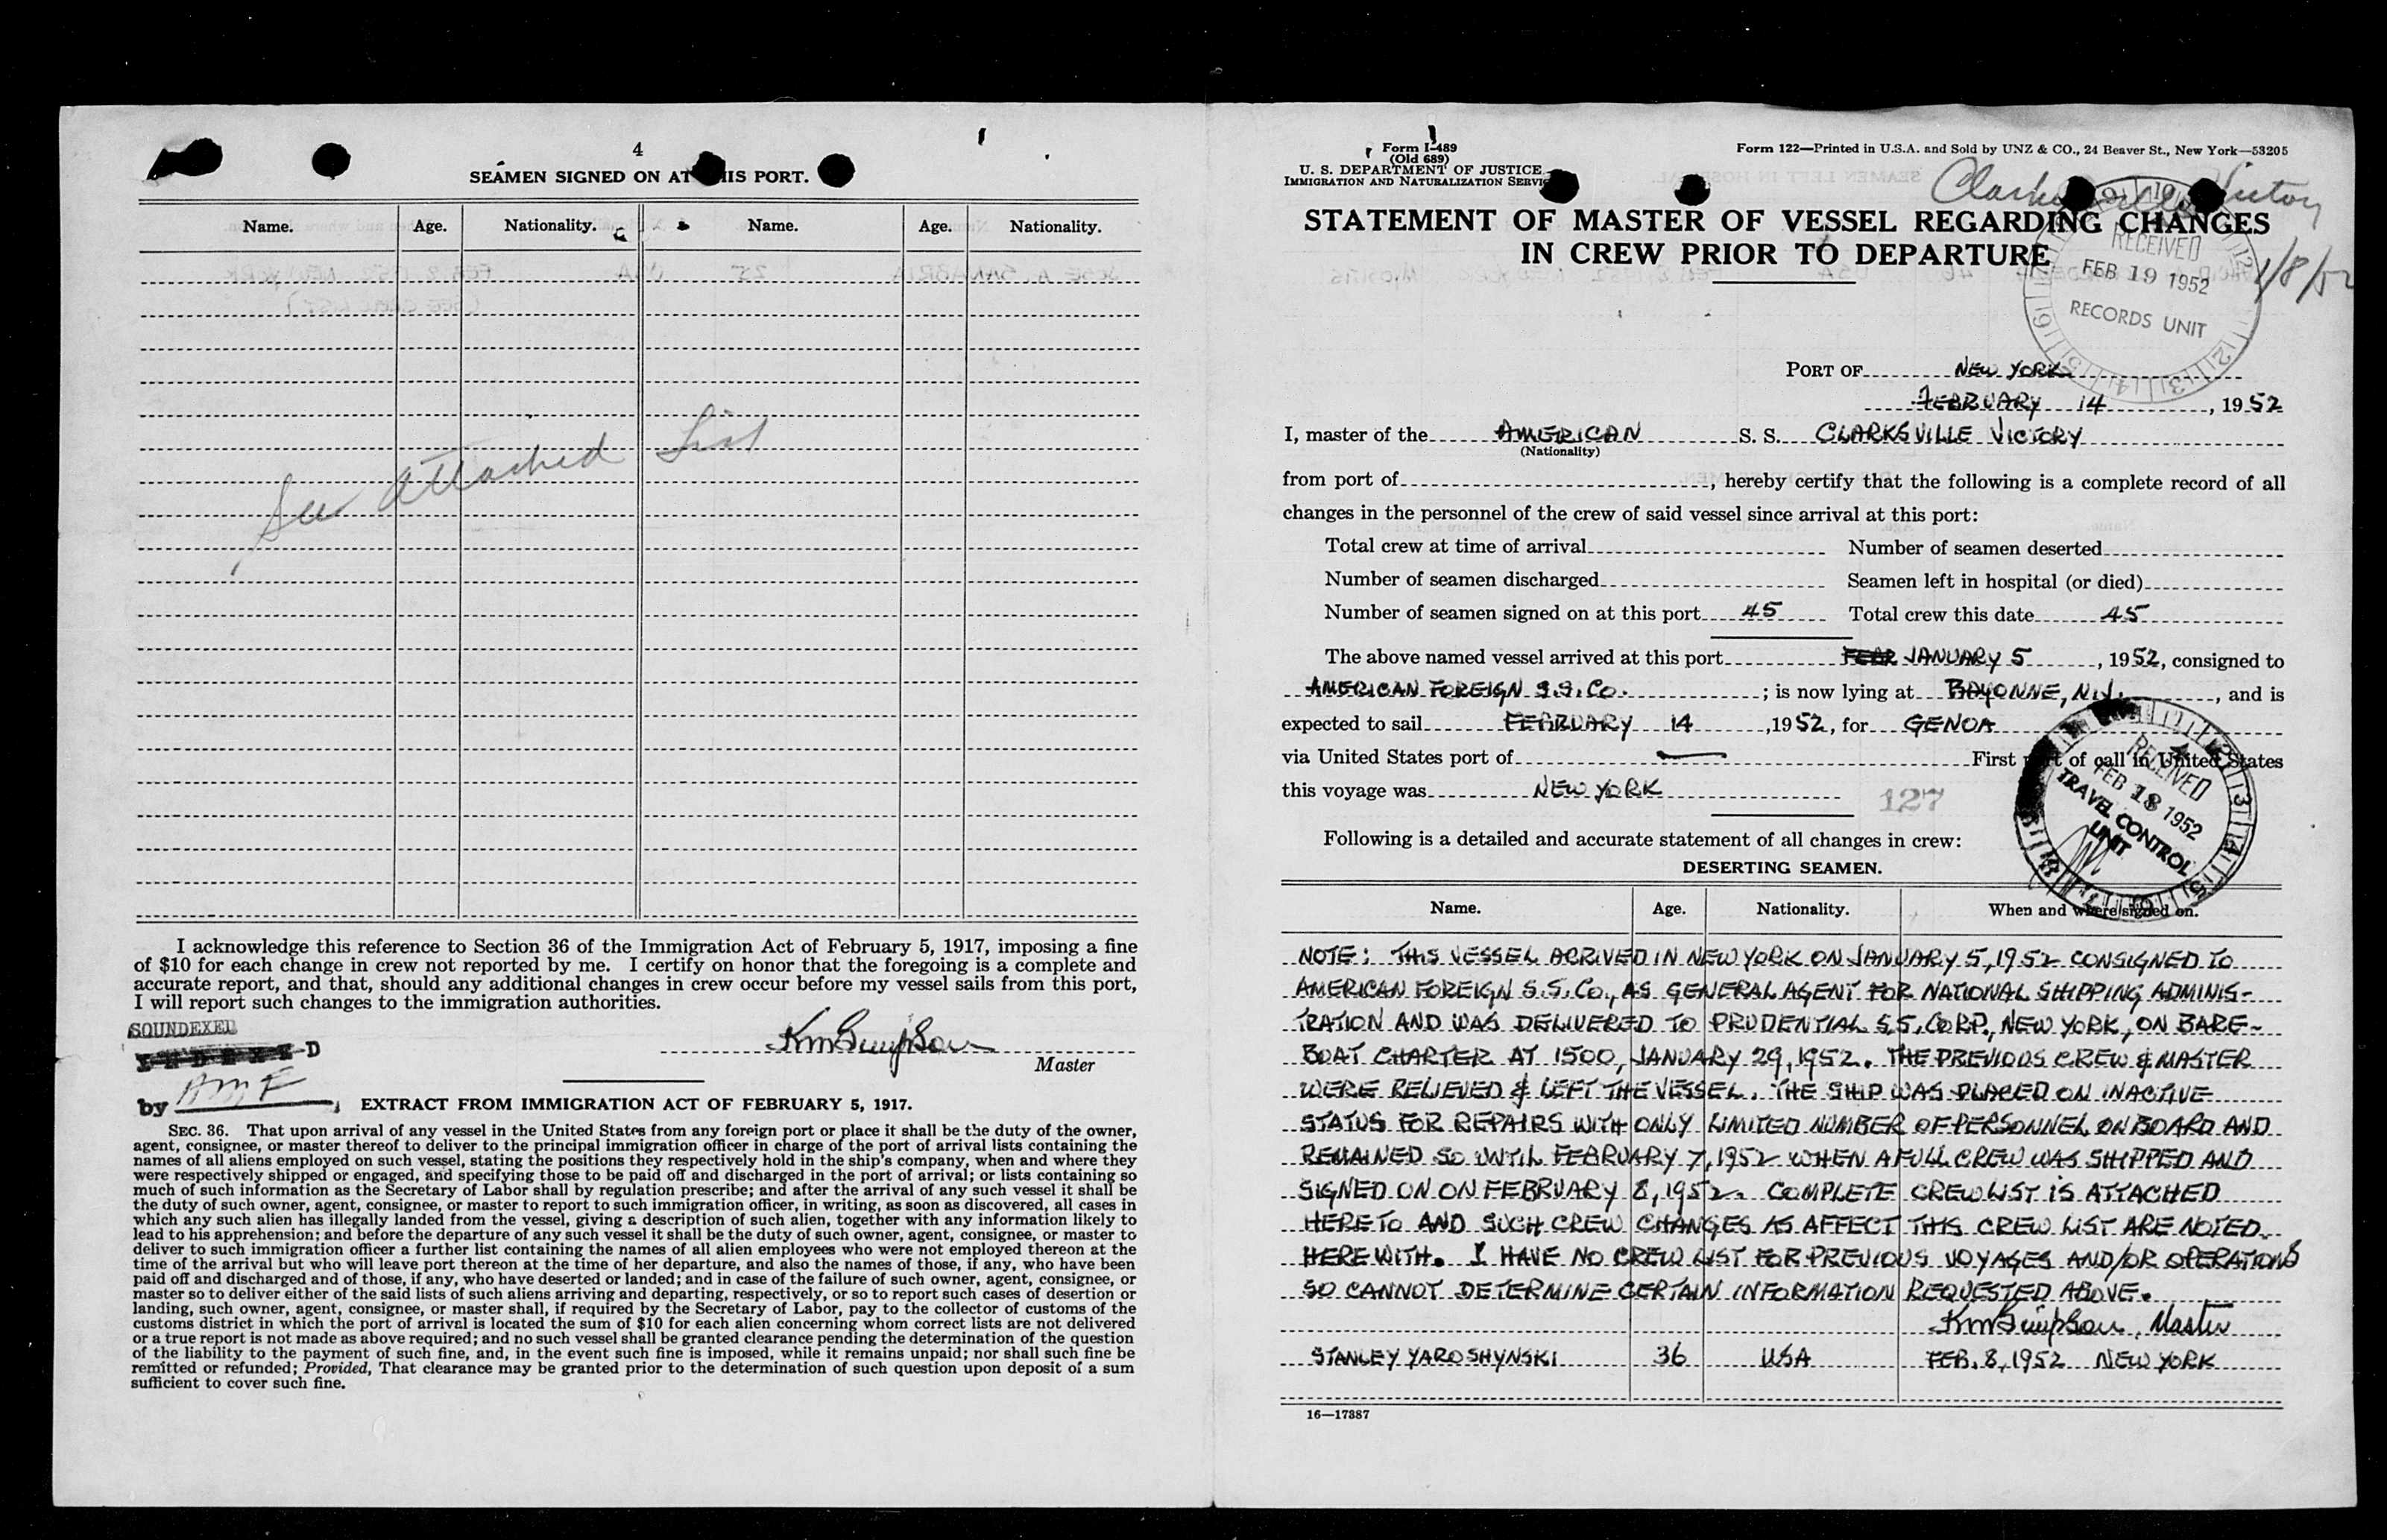 4
SEAMEN SIGNED ON AT THIS PORT.
Name. Age. Nationality. Name. Age. Nationality.
See attached List
I acknowledge this reference to Section 36 of the Immigration Act of February 5, 1917, imposing a fine
of $10 for each change in crew not reported by me. I certify on honor that the foregoing is a complete and
accurate report, and that, should any additional changes in crew occur before my vessel sails from this port,
I will report such changes to the immigration authorities.
SOUNDEXED
Master
by
EXTRACT FROM IMMIGRATION ACT OF FEBRUARY 5, 1917.
SEC. 36. That upon arrival of any vessel in the United States from any foreign port or place it shall be the duty of the owner,
agent, consignee, or master thereof to deliver to the principal immigration officer in charge of the port of arrival lists containing the
names of all aliens employed on such vessel, stating the positions they respectively hold in the ship's company, when and where they
were respectively shipped or engaged, and specifying those to be paid off and discharged in the port of arrival; or lists containing so
much of such information as the Secretary of Labor shall by regulation prescribe; and after the arrival of any such vessel it shall be
the duty of such owner, agent, consignee, or master to report to such immigration officer, in writing, as soon as discovered, all cases in
which any such alien has illegally landed from the vessel, giving a description of such alien, together with any information likely to
lead to his apprehension; and before the departure of any such vessel it shall be the duty of such owner, agent, consignee, or master to
deliver to such immigration officer a further list containing the names of all alien employees who were not employed thereon at the
time of the arrival but who will leave port thereon at the time of her departure, and also the names of those, if any, who have been
paid off and discharged and of those, if any, who have deserted or landed; and in case of the failure of such owner, agent, consignee, or
master so to deliver either of the said lists of such aliens arriving and departing, respectively, or so to report such cases of desertion or
landing, such owner, agent, consignee, or master shall, if required by the Secretary of Labor, pay to the collector of customs of the
customs district in which the port of arrival is located the sum of $10 for each alien concerning whom correct lists are not delivered
or a true report is not made as above required; and no such vessel shall be granted clearance pending the determination of the question
of the liability to the payment of such fine, and, in the event such fine is imposed, while it remains unpaid; nor shall such fine be
remitted or refunded; Provided, That clearance may be granted prior to the determination of such question upon deposit of a sum
sufficient to cover such fine.
Form I-489
(Old 689)
U. S. DEPARTMENT OF JUSTICE
IMMIGRATION AND NATURALIZATION SERVICE
Form 122—Printed in U.S.A. and Sold by UNZ & CO., 24 Beaver St., New York—53205
STATEMENT OF MASTER OF VESSEL REGARDING CHANGES
IN CREW PRIOR TO DEPARTURE
RECEIVED
FEB 19 1952
RECORDS UNIT
PORT OF NEW YORK
FEBRUARY 14, 1952
I, master of the AMERICAN S. S. CLARKSVILLE VICTORY
(Nationality)
from port of, hereby certify that the following is a complete record of all
changes in the personnel of the crew of said vessel since arrival at this port:
Total crew at time of arrival Number of seamen deserted
Number of seamen discharged Seamen left in hospital (or died)
Number of seamen signed on at this port 45 Total crew this date 45
The above named vessel arrived at this port JANUARY 5, 1952, consigned to
AMERICAN FOREIGN S.S. Co.; is now lying at BAYONNE, N.J., and is
expected to sail FEBRUARY 14, 1952, for GENOA
via United States port of — First port of call in United States
this voyage was NEW YORK
127
RECEIVED
FEB 18 1952
TRAVEL CONTROL
UNIT
Following is a detailed and accurate statement of all changes in crew:
DESERTING SEAMEN.
Name. Age. Nationality. When and where signed on.
NOTE: THIS VESSEL ARRIVED IN NEW YORK ON JANUARY 5, 1952 CONSIGNED TO
AMERICAN FOREIGN S.S. Co., AS GENERAL AGENT FOR NATIONAL SHIPPING ADMINIS-
TRATION AND WAS DELIVERED TO PRUDENTIAL S.S. CORP., NEW YORK, ON BARE-
BOAT CHARTER AT 1500, JANUARY 29, 1952. THE PREVIOUS CREW & MASTER
WERE RELIEVED & LEFT THE VESSEL. THE SHIP WAS PLACED ON INACTIVE
STATUS FOR REPAIRS WITH ONLY LIMITED NUMBER OF PERSONNEL ON BOARD AND
REMAINED SO UNTIL FEBRUARY 7, 1952 WHEN A FULL CREW WAS SHIPPED AND
SIGNED ON ON FEBRUARY 8, 1952. COMPLETE CREW LIST IS ATTACHED
HERETO AND SUCH CREW CHANGES AS AFFECT THIS CREW LIST ARE NOTED
HEREWITH. I HAVE NO CREW LIST FOR PREVIOUS VOYAGES AND/OR OPERATIONS
SO CANNOT DETERMINE CERTAIN INFORMATION REQUESTED ABOVE.
KM Simpson, Master
STANLEY YAROSHYNSKI 36 USA FEB. 8, 1952 NEW YORK
16—17387